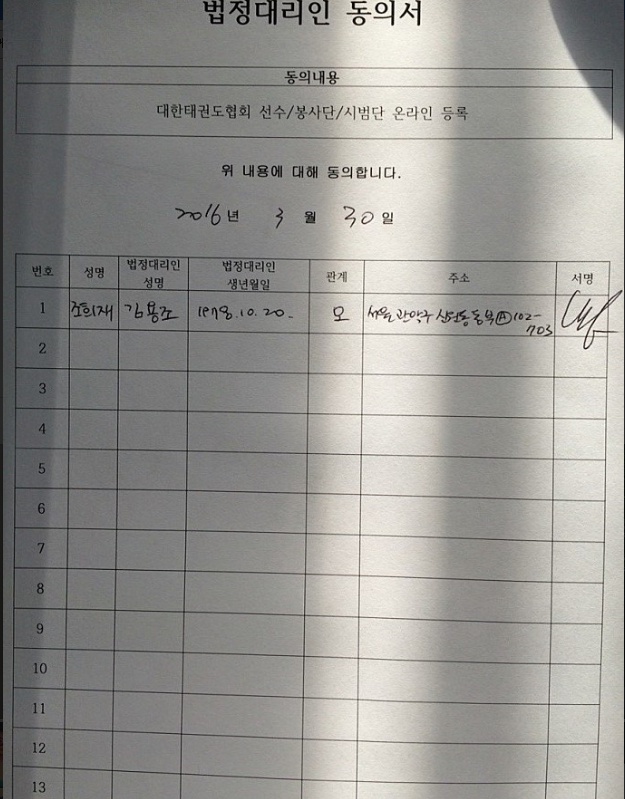 법정대리인 동의서
동의내용
대한태권도협회 선수/봉사단/시범단 온라인 등록
위 내용에 대해 동의합니다.
2016년 3 월 30 일
번호 성명 법정대리인 성명 법정대리인 생년월일 관계 주소 서명
1 조희재 김용조 1978.10.20. 모 서울 관악구 신림동 동부 102-
703
2
3
4
5
6
7
8
9
10
11
12
13